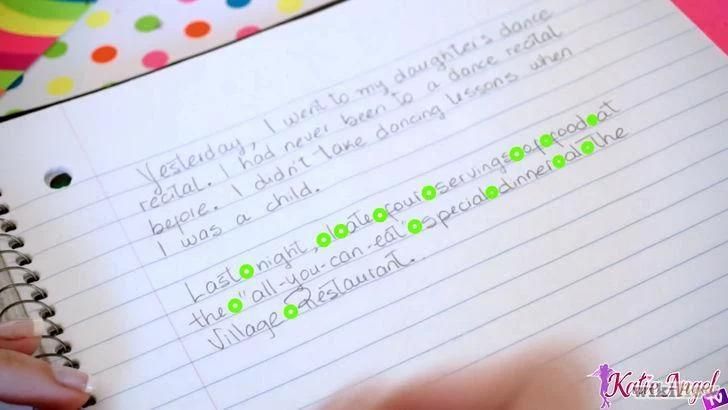 Yesterday, I went to my daughter's dance
recital. I had never been to a dance recital
before. I didn't take dancing lessons when
I was a child.
Last night, I ate four servings of food at
the "all-you-can-eat" special dinner at the
Village Restaurant...
Katie Angel
TV